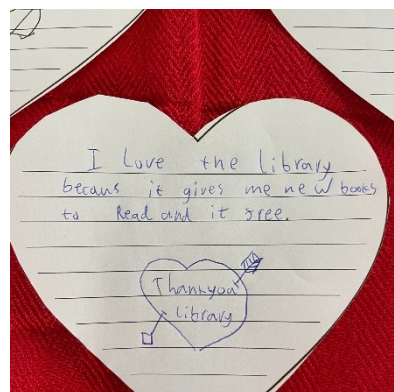 I love the library
becaus it gives me new books
to Read and it free.
Thankyou
library